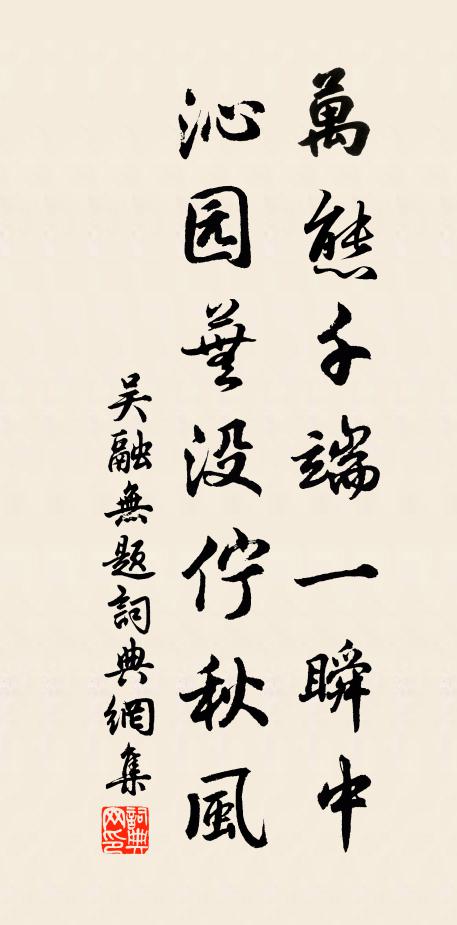 萬態千端一瞬中
沁园蕪没佇秋風
吴融無题詞典網集
詞典网印